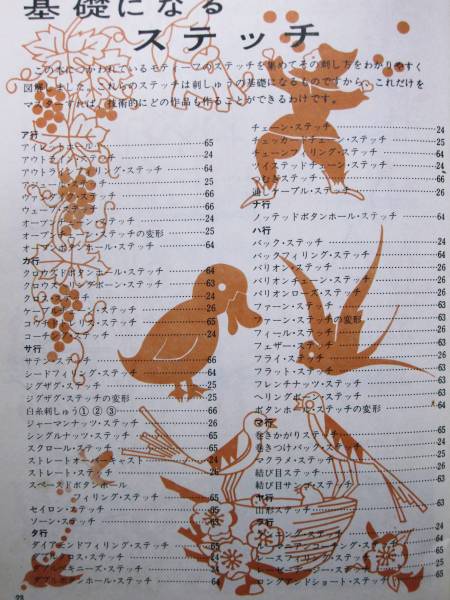 基礎になる
ステッチ
この本につかわれているモティーフのステッチを集めてその刺し方をわかりやすく
図解しました。これらのステッチは刺しゅうの基礎になるものですから、これだけを
マスターすれば、技術的にどの作品も作ることができるわけです。
ア行
アイレットホール 65
アウトライン・ステッチ 24
アウトラインフィリング・ステッチ 65
ステッチ 25
ステッチ 66
ステッチ 66
オープンチェーン・ステッチ 24
オープンチェーン・ステッチの変形 25
オープンボタンホール・ステッチ 64
カ行
クロウズドボタンホール・ステッチ 64
クロウズドヘリングボーン・ステッチ 63
クロス・ステッチ 24
ステッチ 26
ステッチ 65
ステッチ 24
サ行
サテン・ステッチ 66
シードフィリング・ステッチ 64
ジグザグ・ステッチ 25
ジグザグ・ステッチの変形 25
白糸刺しゅう①②③ 66
ジャーマンナッツ・ステッチ 26
シングルナッツ・ステッチ 65
スクロール・ステッチ 65
ストレートオーバーキャスト 64
ストレート・ステッチ 26
スペースドボタンホール
フィリング・ステッチ 65
セイロン・ステッチ 65
ソーン・ステッチ 63
タ行
ダイアモンドフィリング・ステッチ 64
ステッチ 24
ステッチ 26
ダブルボタンホール・ステッチ 64
チェーン・ステッチ 24
チェッカードチェーン・ステッチ 25
チェーンフィリング・ステッチ 64
ツイステッドチェーン・ステッチ 24
つむぎステッチ 66
ケーブル・ステッチ 26
ナ行
ノッテッドボタンホール・ステッチ 64
ハ行
バック・ステッチ 24
バックフィリング・ステッチ 64
バリオン・ステッチ 26
バリオンチェーン・ステッチ 26
バリオンローズ・ステッチ 26
ファーン・ステッチ 63
ファーン・ステッチの変形 63
フィール・ステッチ 26
フェザー・ステッチ 63
フライ・ステッチ 26
フラット・ステッチ 63
フレンチナッツ・ステッチ 26
ヘリングボーン・ステッチ 63
ボタンホール・ステッチの変形 64
マ行
巻きかがりステッチ 65
巻きつけバック・ステッチ 24
マクラメ・ステッチ 25
結び目ステッチ 26
結び目サンド・ステッチ 26
ヤ行
山形ステッチ 63
ラ行
ステッチ 24
ステッチ 65
レースフィリング・ステッチ 65
レーゼーデージー・ステッチ 25
ロングアンドショート・ステッチ 65
23